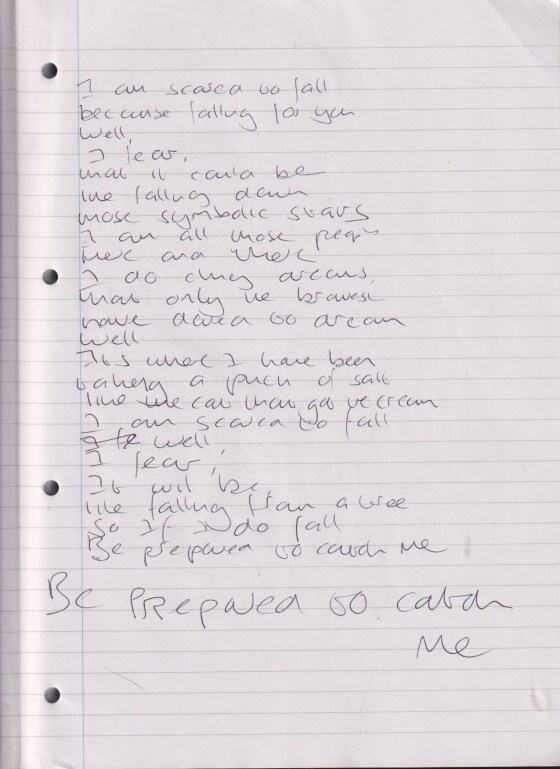 I am scared to fall
because falling for you
Well,
I fear,
that it could be
like falling down
those symbolic stairs
I am all those
here and there
I do chug dreams,
that only the bravest
have dared to dream
Well
It's what I have been
taking a pinch of salt
like the cat that got the cream
I am scared to fall
Well,
I fear,
It will be,
like falling from a tree
So If I do fall
Be prepared to catch me
Be Prepared to catch
Me